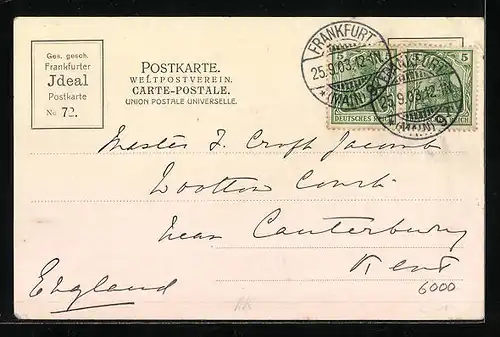 Ges. gesch.
Frankfurter
Jdeal
Postkarte
No 72.
POSTKARTE.
WELTPOSTVEREIN.
CARTE-POSTALE.
UNION POSTALE UNIVERSELLE.
FRANKFURT
25.9.03.12-1N
*(MAIN)9
5
DEUTSCHES REICH
FRANKFURT
25.9.03.12-1N
(MAIN)9
Master J. Croft
Wootton Court
Near Canterbury
Kent
England
6000